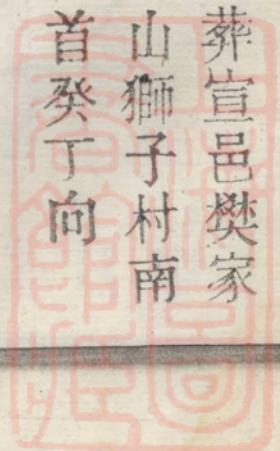 葬宣邑樊家
山獅子村南
首癸丁向